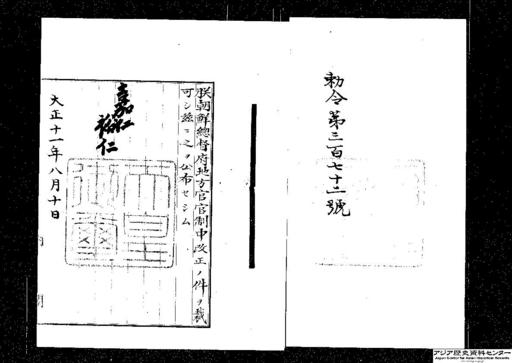 勅令第三百七十二號
朕朝鮮總督府地方官官制中改正ノ件ヲ裁
可シ茲ニ之ヲ公布セシム
嘉仁
裕仁
大正十一年八月十日
内
閣
アジア歴史資料センター
Japan Center for Asian Historical Records